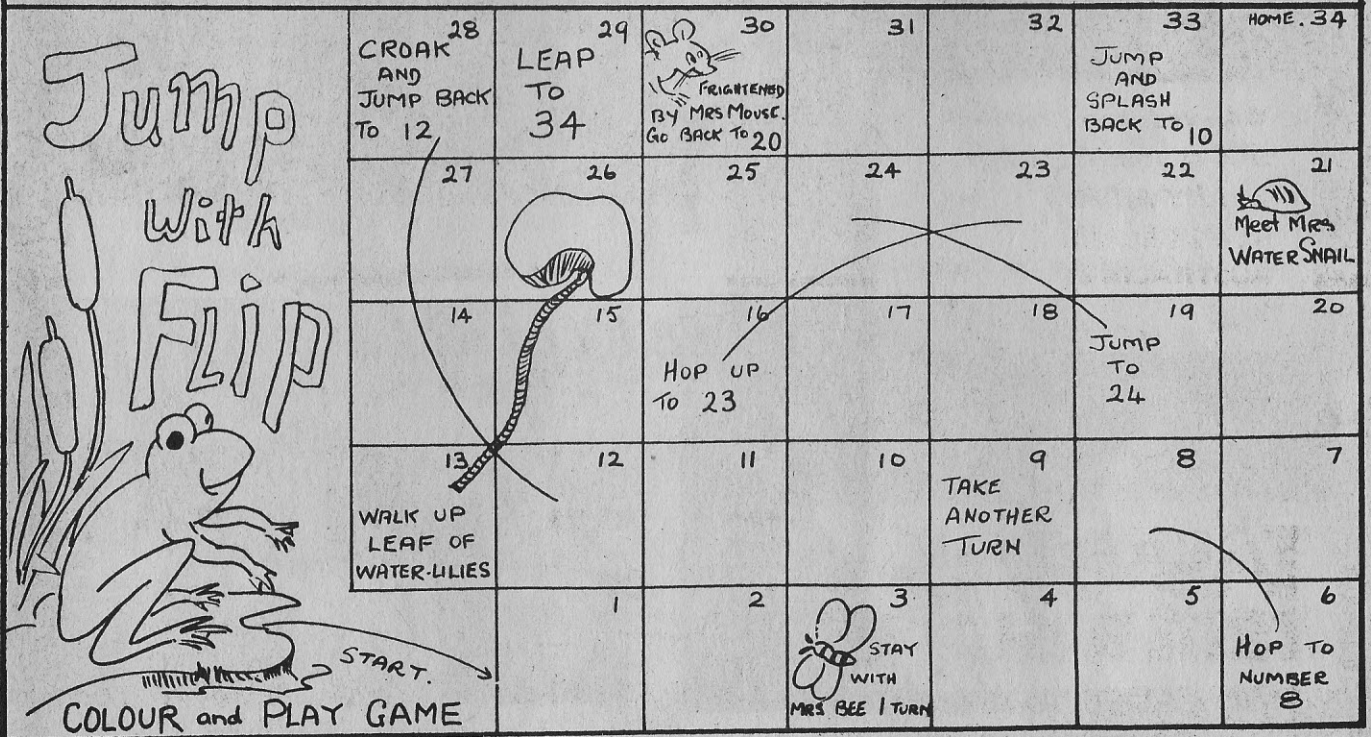 Jump
With
Flip
START.
COLOUR and PLAY GAME
28
CROAK
AND
JUMP BACK
TO 12
29
LEAP
TO
34
30
FRIGHTENED
BY MRS MOUSE.
GO BACK TO 20
31
32
33
JUMP
AND
SPLASH
BACK TO 10
HOME. 34
27
26
25
24
23
22
21
Meet MRS
WATER SNAIL
14
15
16
HOP UP
TO 23
17
18
19
JUMP
TO
24
20
13
WALK UP
LEAF OF
WATER-LILIES
12
11
10
9
TAKE
ANOTHER
TURN
8
7
1
2
3
STAY
WITH
MRS BEE 1 TURN
4
5
6
HOP TO
NUMBER
8